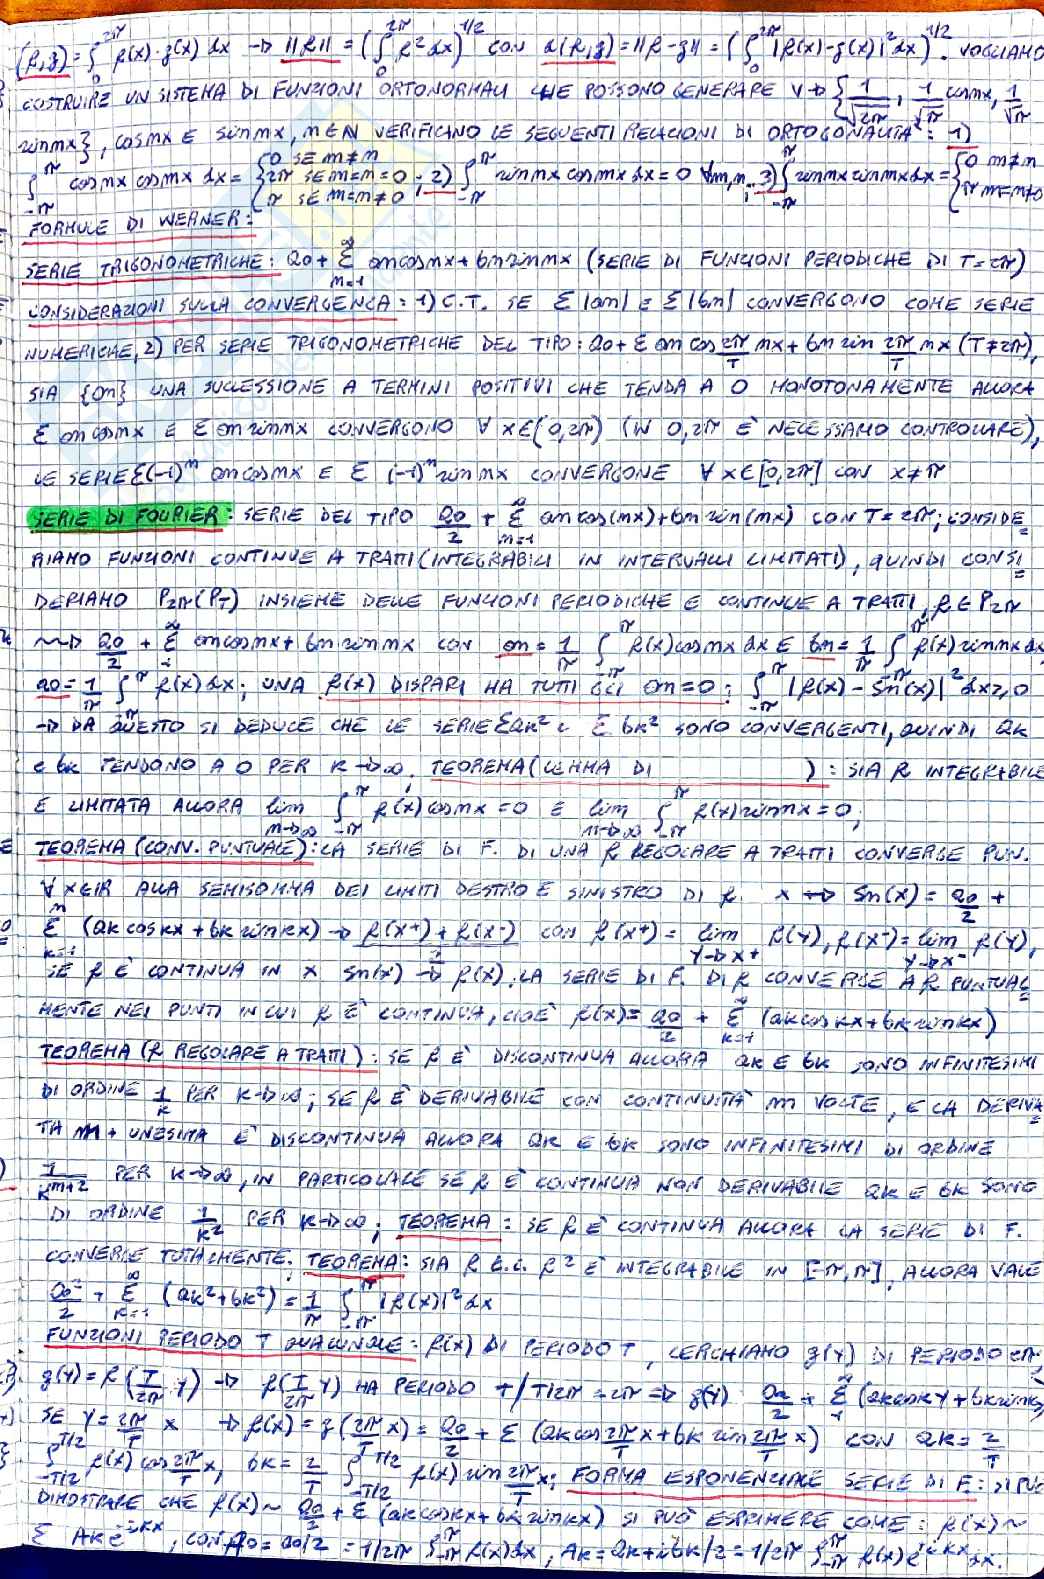 (f,g) = ∫₀^2π f(x)·g(x) dx → ||f|| = (∫₀^2π f² dx)^1/2 CON d(f,g) = ||f-g|| = (∫₀^2π |f(x)-g(x)|² dx)^1/2. VOGLIAMO
COSTRUIRE UN SISTEMA DI FUNZIONI ORTONORMALI CHE POSSONO GENERARE V → {1/√2π, 1/√π cosnx, 1/√π
sinnx}, cosnx E sinnx, n∈N VERIFICANO LE SEGUENTI RELAZIONI DI ORTOGONALITA': 1)
∫_-π^π cosnx cosmx dx = {0 SE m≠n 2π SE m=n=0 π SE m=n≠0 ; 2) ∫_-π^π sinnx cosmx dx = 0 ∀m,n; 3) ∫_-π^π sinnx sinmx dx = {0 m≠n π m=n≠0
FORMULE DI WERNER:
SERIE TRIGONOMETRICHE: a0 + Σ_n=1^∞ an cosnx + bn sinnx (SERIE DI FUNZIONI PERIODICHE DI T=2π)
CONSIDERAZIONI SULLA CONVERGENZA: 1) C.T. SE Σ|an| E Σ|bn| CONVERGONO COME SERIE
NUMERICHE, 2) PER SERIE TRIGONOMETRICHE DEL TIPO: a0 + Σ an cos 2π/T nx + bn sin 2π/T nx (T≠2π),
SIA {an} UNA SUCCESSIONE A TERMINI POSITIVI CHE TENDA A 0 MONOTONAMENTE ALLORA
Σ an cosnx E Σ an sinnx CONVERGONO ∀ x∈(0,2π) (IN 0,2π È NECESSARIO CONTROLLARE),
LE SERIE Σ(-1)^n an cosnx E Σ (-1)^n sin nx CONVERGONE ∀ x∈[0,2π] CON x≠π
SERIE DI FOURIER: SERIE DEL TIPO a0/2 + Σ_n=1^∞ an cos(nx) + bn sin(nx) CON T=2π; CONSIDE
RIAMO FUNZIONI CONTINUE A TRATTI (INTEGRABILI IN INTERVALLI LIMITATI), QUINDI CONSI
DERIAMO P2π(PT) INSIEME DELLE FUNZIONI PERIODICHE E CONTINUE A TRATTI, f∈P2π
~→ a0/2 + Σ_1^∞ an cosnx + bn sinnx CON an = 1/π ∫_-π^π f(x) cosnx dx E bn = 1/π ∫_-π^π f(x) sinnx dx
a0 = 1/π ∫_-π^π f(x) dx; UNA f(x) DISPARI HA TUTTI GLI an=0; ∫_-π^π |f(x) - Sn(x)|² dx ≥ 0
→ DA QUESTO SI DEDUCE CHE LE SERIE Σak² E Σ bk² SONO CONVERGENTI, QUINDI ak
E bk TENDONO A 0 PER k→∞. TEOREMA (LEMMA DI ): SIA f INTEGRABILE
E LIMITATA ALLORA lim_n→∞ ∫_-π^π f(x) cosnx = 0 E lim_n→∞ ∫_-π^π f(x) sinnx = 0;
TEOREMA (CONV. PUNTUALE): LA SERIE DI F. DI UNA f REGOLARE A TRATTI CONVERGE PUN.
∀ x∈IR ALLA SEMISOMMA DEI LIMITI DESTRO E SINISTRO DI f. x → Sn(x) = a0/2 +
Σ_k=1^n (ak cos kx + bk sin kx) → f(x+) + f(x-) / 2 CON f(x+) = lim_y→x+ f(y), f(x-) = lim_y→x- f(y),
SE f È CONTINUA IN x Sn(x) → f(x). LA SERIE DI F. DI f CONVERGE A f PUNTUAL
MENTE NEI PUNTI IN CUI f È CONTINUA, CIOÈ f(x) = a0/2 + Σ_k=1^∞ (ak cos kx + bk sin kx)
TEOREMA (f REGOLARE A TRATTI): SE f È DISCONTINUA ALLORA ak E bk SONO INFINITESIMI
DI ORDINE 1/k PER k→∞; SE f È DERIVABILE CON CONTINUITÀ m VOLTE, E LA DERIVA
TA m+UNESIMA È DISCONTINUA ALLORA ak E bk SONO INFINITESIMI DI ORDINE
1/k^m+2 PER k→∞, IN PARTICOLARE SE f È CONTINUA NON DERIVABILE ak E bk SONO
DI ORDINE 1/k² PER k→∞; TEOREMA: SE f È CONTINUA ALLORA LA SERIE DI F.
CONVERGE TOTALMENTE. TEOREMA: SIA f t.c. f² È INTEGRABILE IN [-π,π], ALLORA VALE
a0²/2 + Σ_k=1^∞ (ak²+bk²) = 1/π ∫_-π^π |f(x)|² dx
FUNZIONI PERIODO T QUALUNQUE: f(x) DI PERIODO T, CERCHIAMO g(y) DI PERIODO 2π,
g(y) = f(T/2π y) → f(T/2π y) HA PERIODO T/T/2π = 2π ⇒ g(y) a0/2 + Σ_1^∞ (ak cos ky + bk sin ky)
SE y = 2π/T x → f(x) = g(2π/T x) = a0/2 + Σ (ak cos 2π/T x + bk sin 2π/T x) CON ak = 2/T
∫_-T/2^T/2 f(x) cos 2π/T x, bk = 2/T ∫_-T/2^T/2 f(x) sin 2π/T x; FORMA ESPONENZIALE SERIE DI F.: SI PUÒ
DIMOSTRARE CHE f(x) ~ a0/2 + Σ (ak cos kx + bk sin kx) SI PUÒ ESPRIMERE COME: f(x) ~
Σ Ak e^-ikx, CON A0 = a0/2 = 1/2π ∫_-π^π f(x) dx, Ak = ak+ibk/2 = 1/2π ∫_-π^π f(x) e^ikx dx.